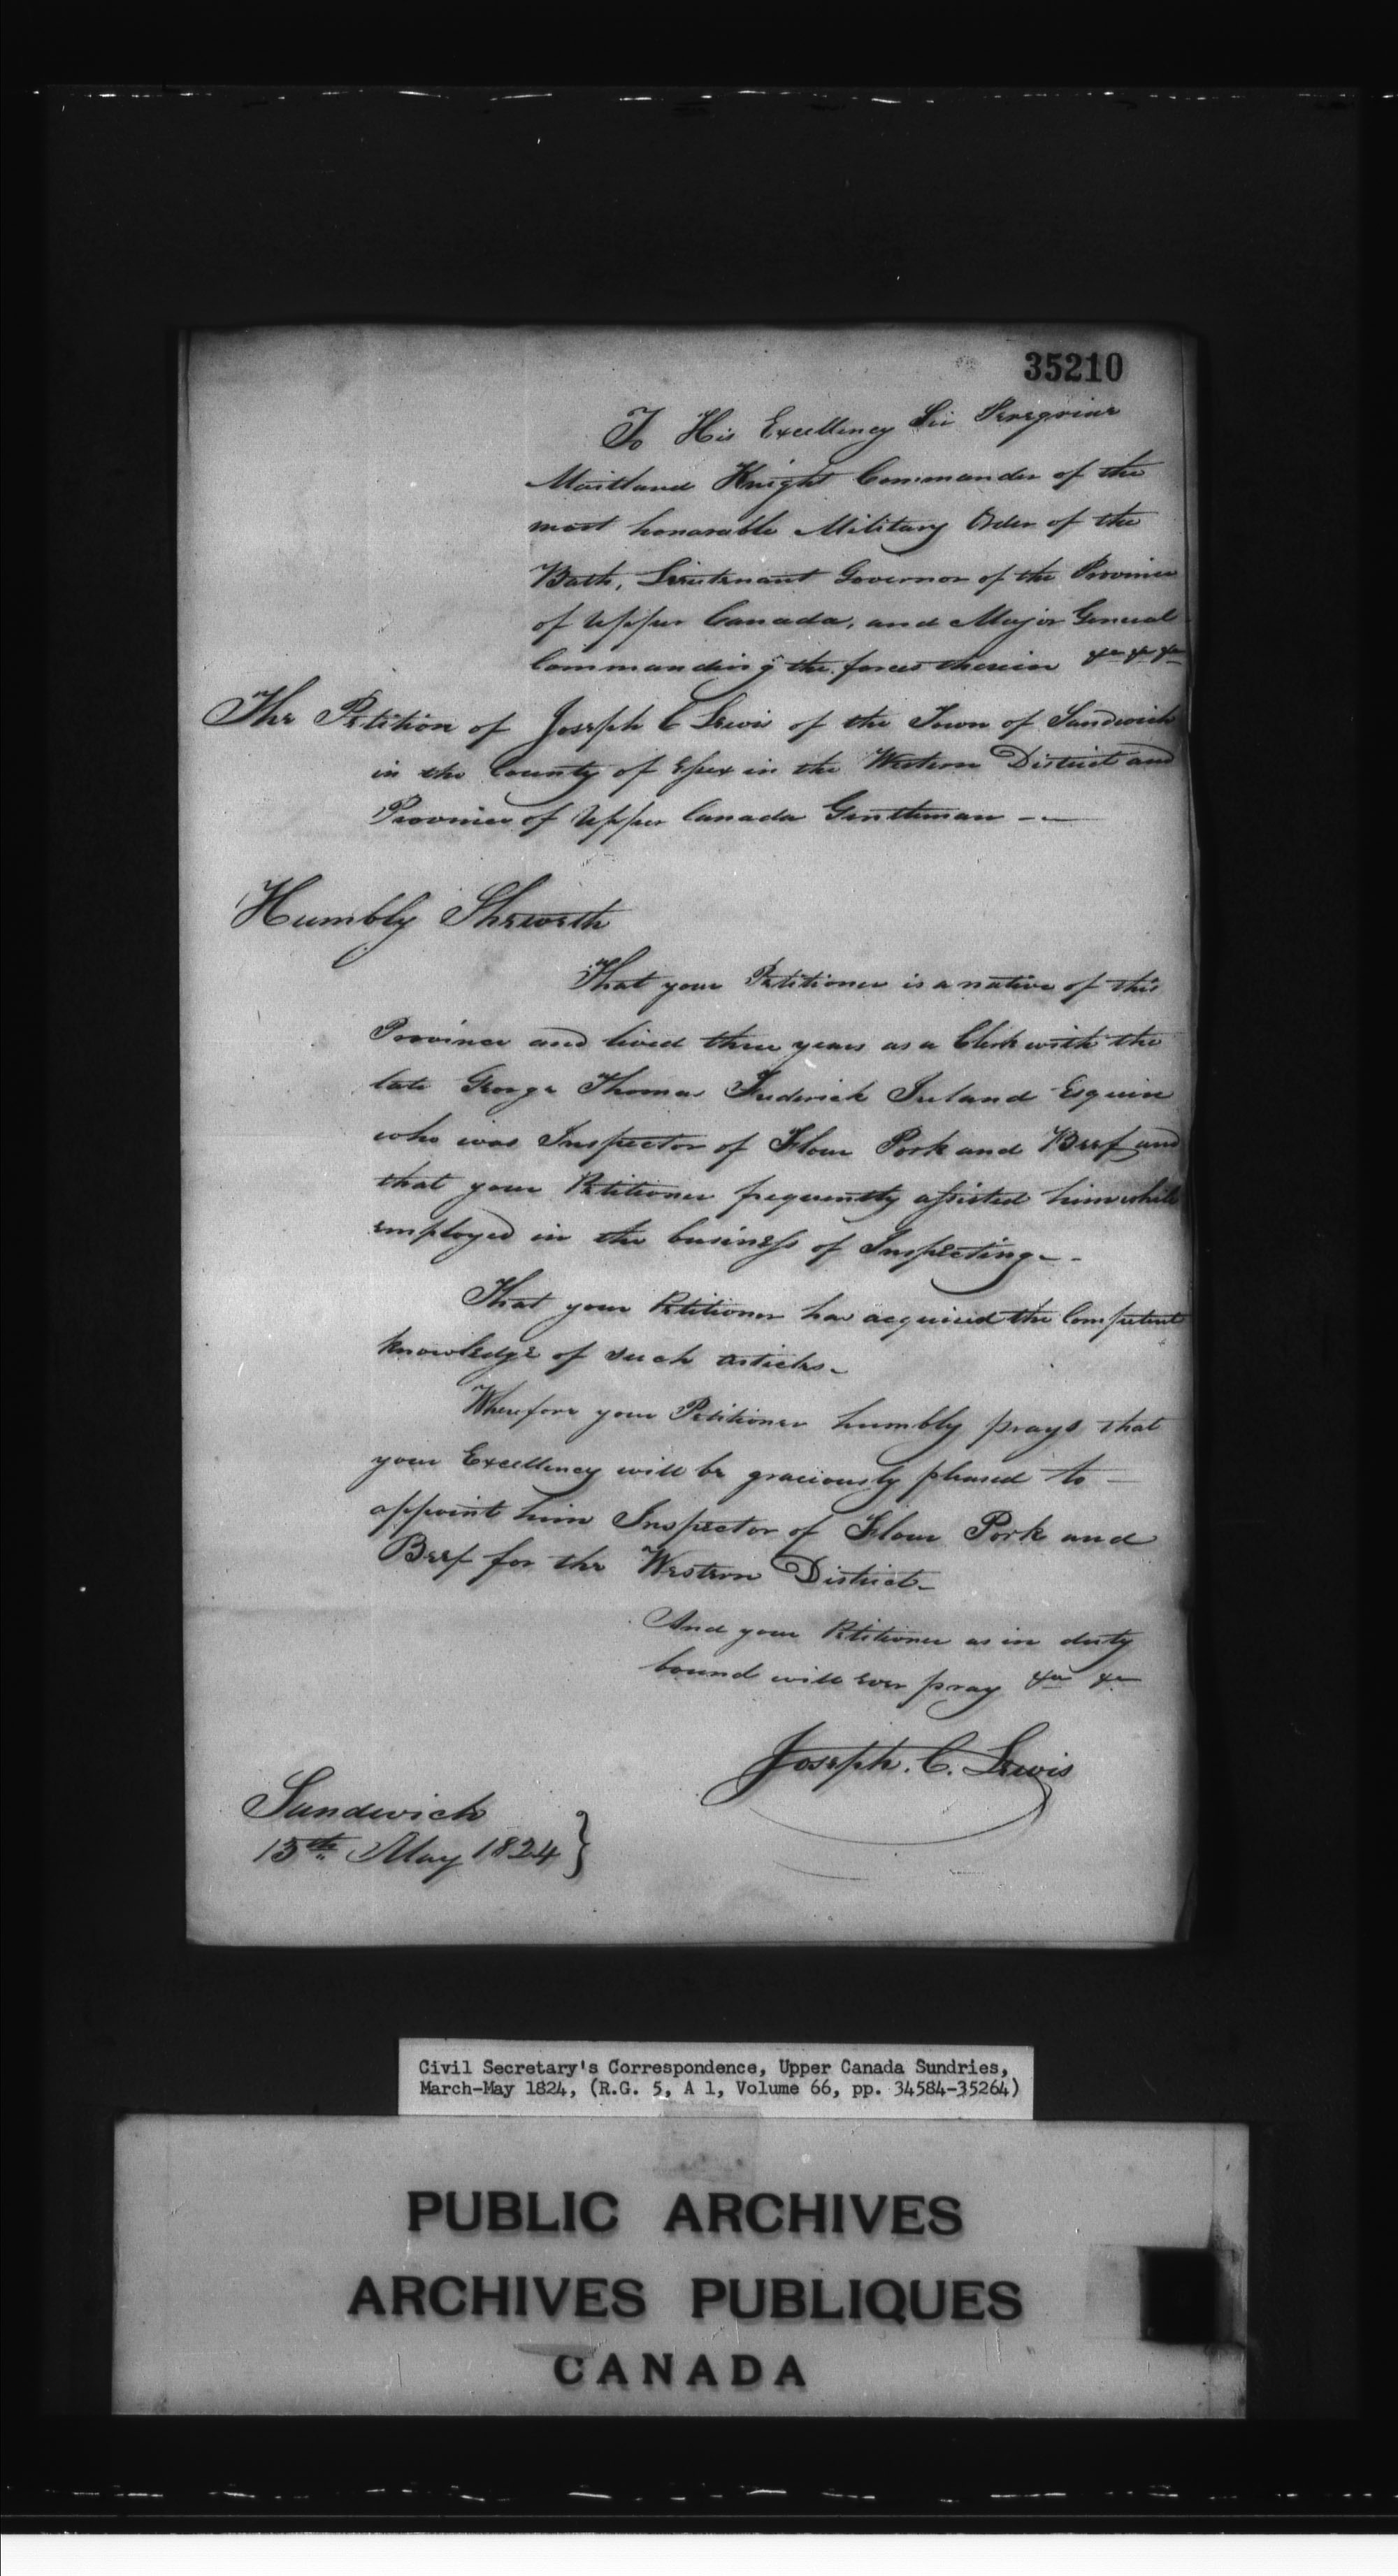 35210
To His Excellency Sir Peregrine
Maitland Knight Commander of the
most honorable Military Order of the
Bath, Lieutenant Governor of the Province
of Upper Canada, and Major General
Commanding the forces therein &c &c &c
The Petition of Joseph C Lewis of the Town of Sandwich
in the County of Essex in the Western District and
Province of Upper Canada Gentleman --
Humbly Sheweth
That your Petitioner is a native of this
Province and lived three years as a Clerk with the
late George Thomas Frederick Ireland Esquire
who was Inspector of Flour Pork and Beef and
that your Petitioner frequently assisted him while
employed in the business of Inspecting.-
That your Petitioner has acquired the Competent
knowledge of such articles.
Wherefore your Petitioner humbly prays that
your Excellency will be graciously pleased to -
appoint him Inspector of Flour Pork and
Beef for the Western District.
And your Petitioner as in duty
bound will ever pray &c &c
Joseph. C. Lewis
Sandwich
15th May 1824 }
Civil Secretary's Correspondence, Upper Canada Sundries,
March-May 1824, (R.G. 5, A 1, Volume 66, pp. 34584-35264)
PUBLIC ARCHIVES
ARCHIVES PUBLIQUES
CANADA